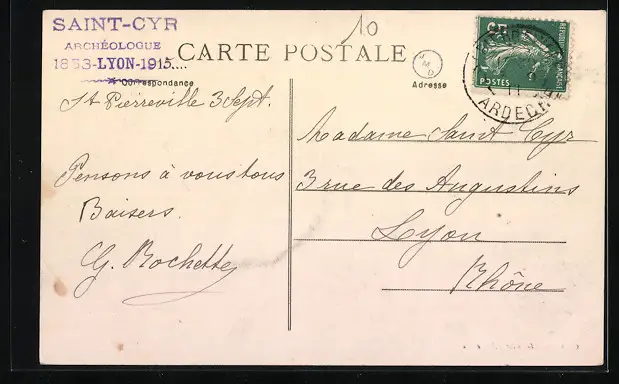 SAINT-CYR
ARCHÉOLOGUE
1853-LYON-1915....
10
CARTE POSTALE
Correspondance
Adresse
RÉPUBLIQUE FRANÇAISE
POSTES
ARDECHE
St Pierreville 3 Sept.
Pensons à vous tous
Baisers.
G. Rochette
Madame Saint Cyr
3 rue des Augustins
Lyon
Rhône